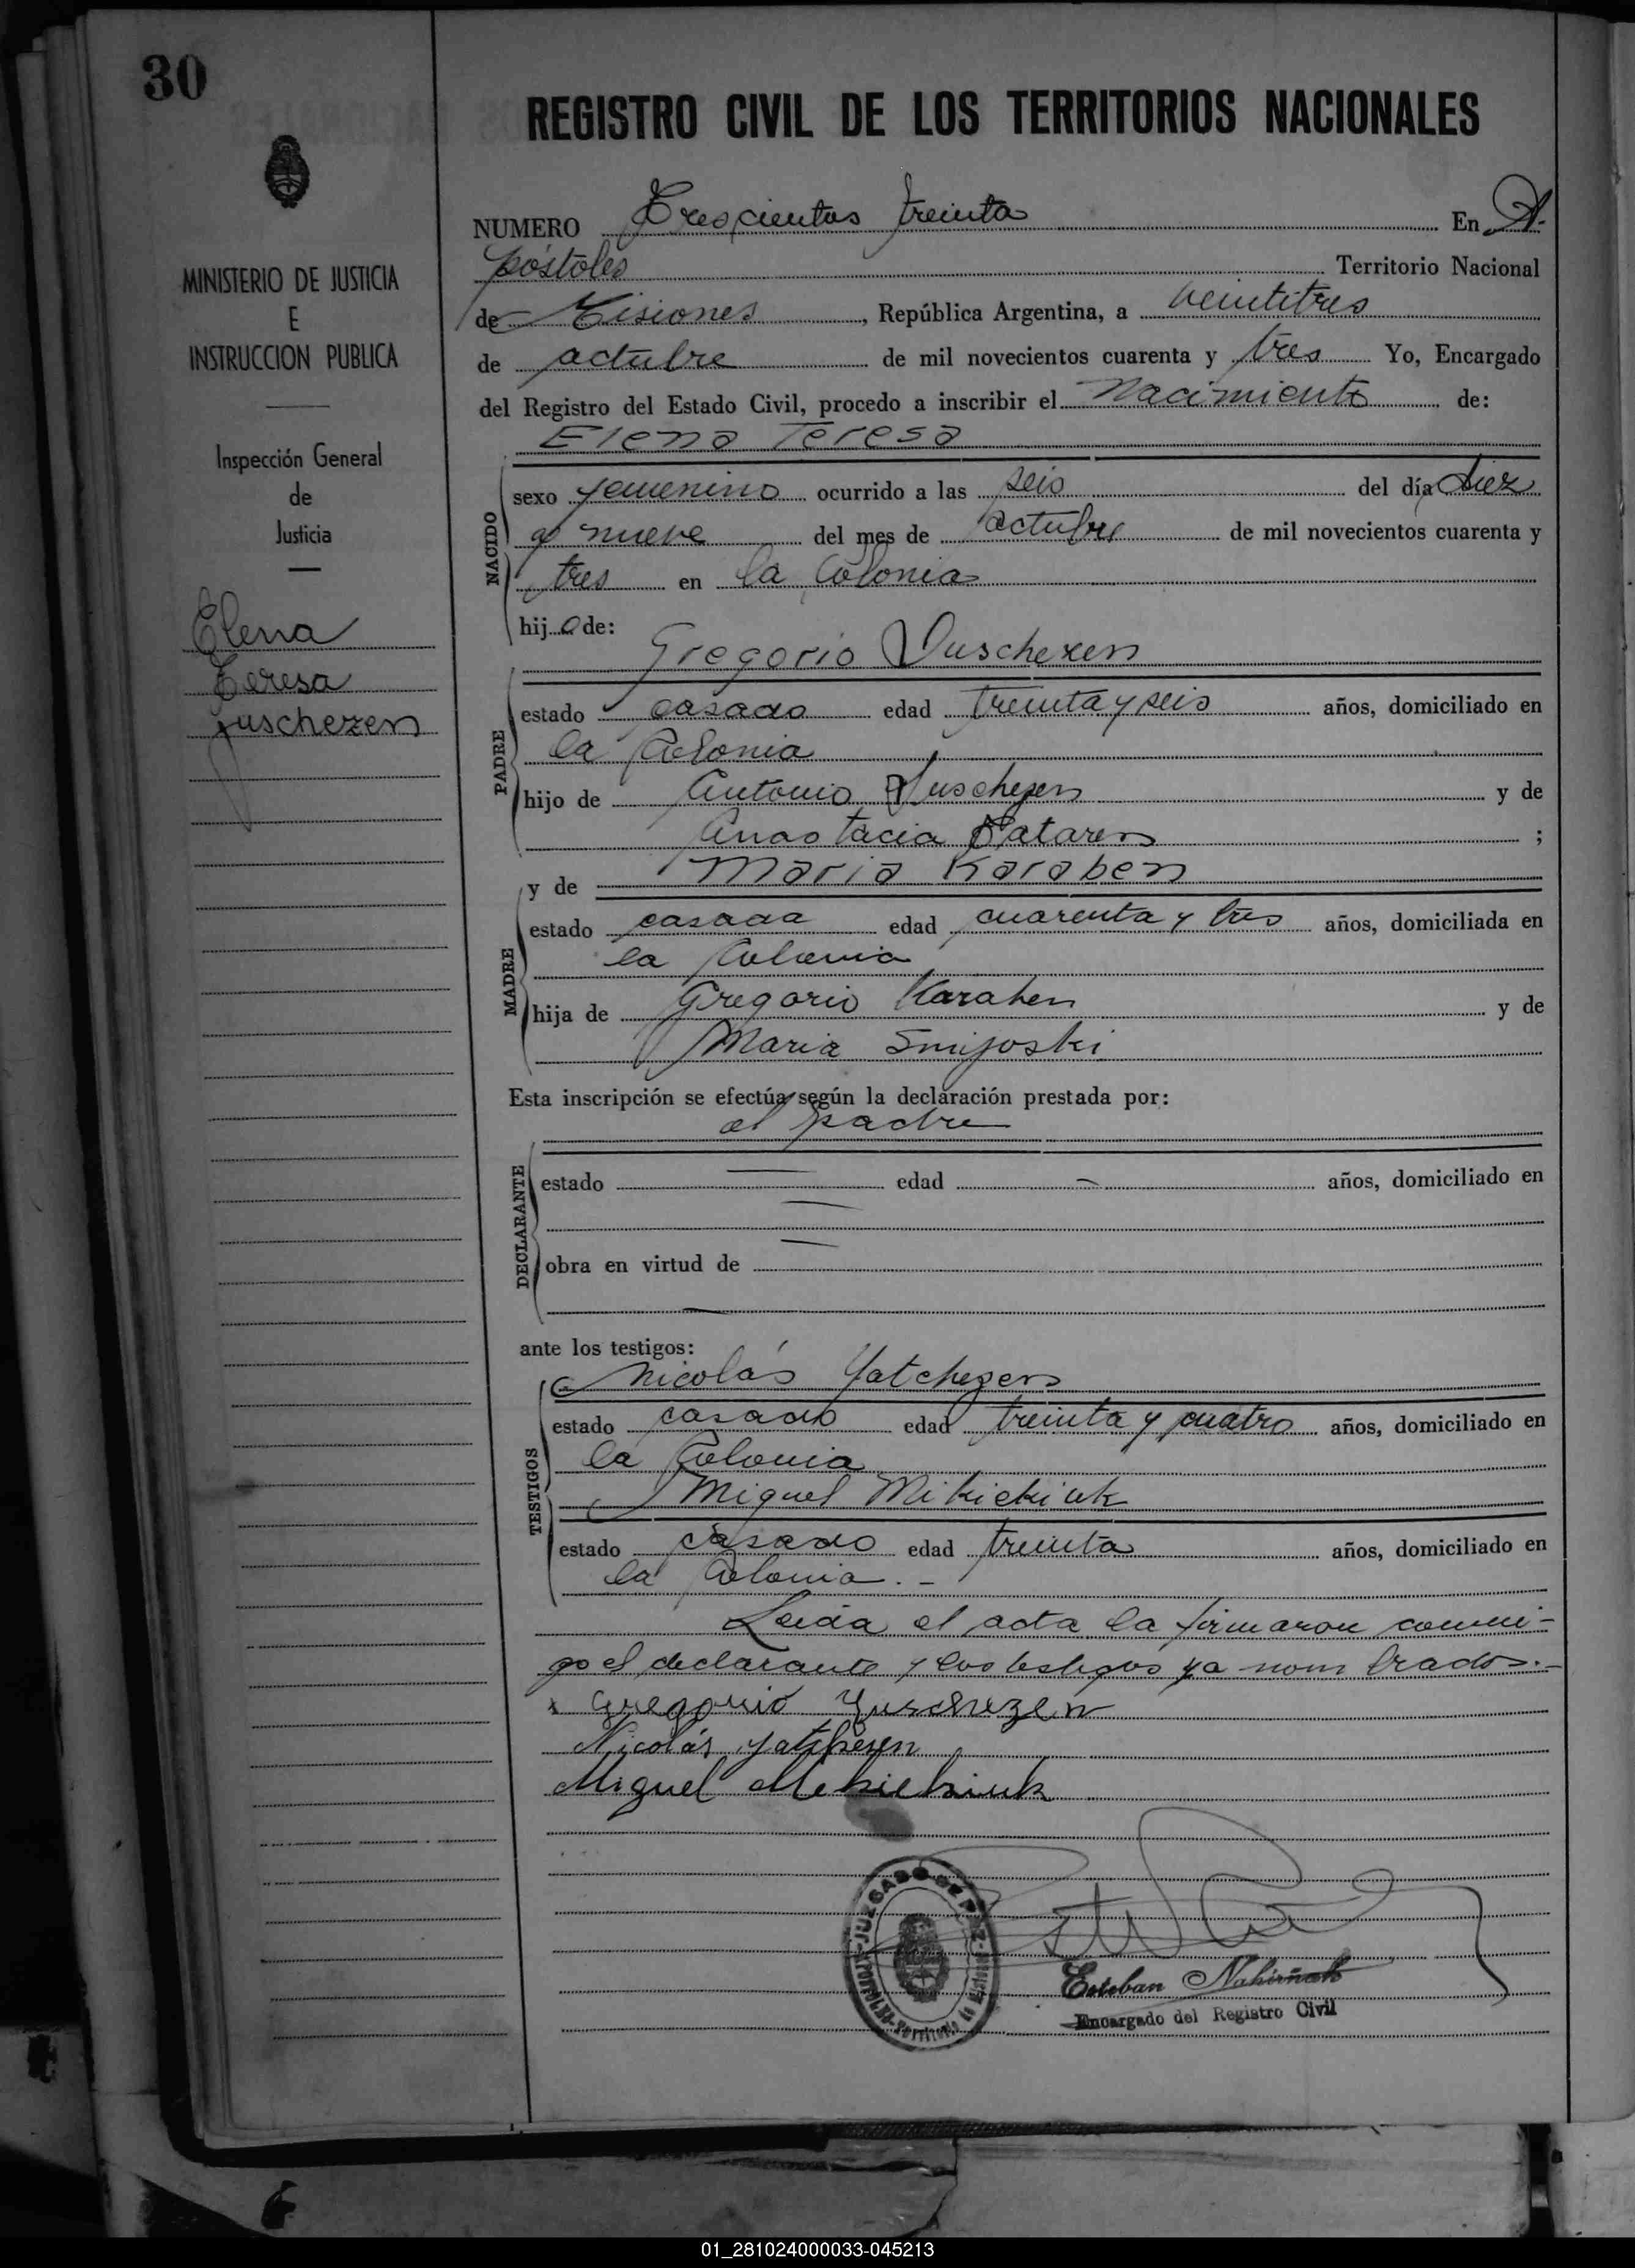 30
REGISTRO CIVIL DE LOS TERRITORIOS NACIONALES
MINISTERIO DE JUSTICIA
E
INSTRUCCION PUBLICA
Inspección General
de
Justicia
Elena
Teresa
Juschezen
NUMERO Trescientos treinta En A-
póstoles Territorio Nacional
de Misiones, República Argentina, a veintitres
de octubre de mil novecientos cuarenta y tres Yo, Encargado
del Registro del Estado Civil, procedo a inscribir el Nacimiento de:
Elena Teresa
NACIDO
sexo femenino ocurrido a las seis del día diez
y nueve del mes de octubre de mil novecientos cuarenta y
tres en la Colonia
hij o de:
Gregorio Juschezen
PADRE
estado casado edad treinta y seis años, domiciliado en
la Colonia
hijo de Antonio Juschezen y de
Anastacia Bataren ;
y de Maria Karaben
MADRE
estado casada edad cuarenta y tres años, domiciliada en
la Colonia
hija de Gregorio Karaben y de
Maria
Esta inscripción se efectúa según la declaración prestada por:
el padre
DECLARANTE
estado — edad — años, domiciliado en
obra en virtud de
ante los testigos:
Nicolás Yatchezen
TESTIGOS
estado casado edad treinta y cuatro años, domiciliado en
la Colonia
Miguel Mikickiuk
estado casado edad treinta años, domiciliado en
la Colonia.-
Leída el acta la firmaron conmi-
go el declarante y los testigos ya nombrados.-
Gregorio Yuschezen
Nicolás Yatchesen
Miguel Mekiekiuk
JUZGADO DE PAZ
Esteban Nahirñak
Encargado del Registro Civil
01_281024000033-045213